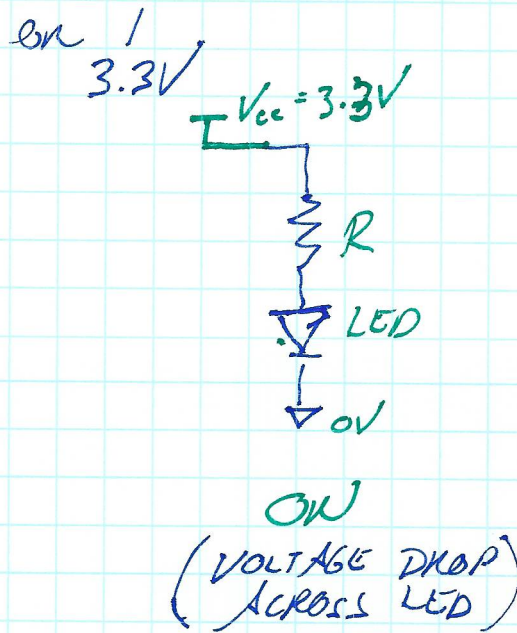 or 1
3.3V
Vcc = 3.3V
R
LED
0V
ON
(VOLTAGE DROP
ACROSS LED)